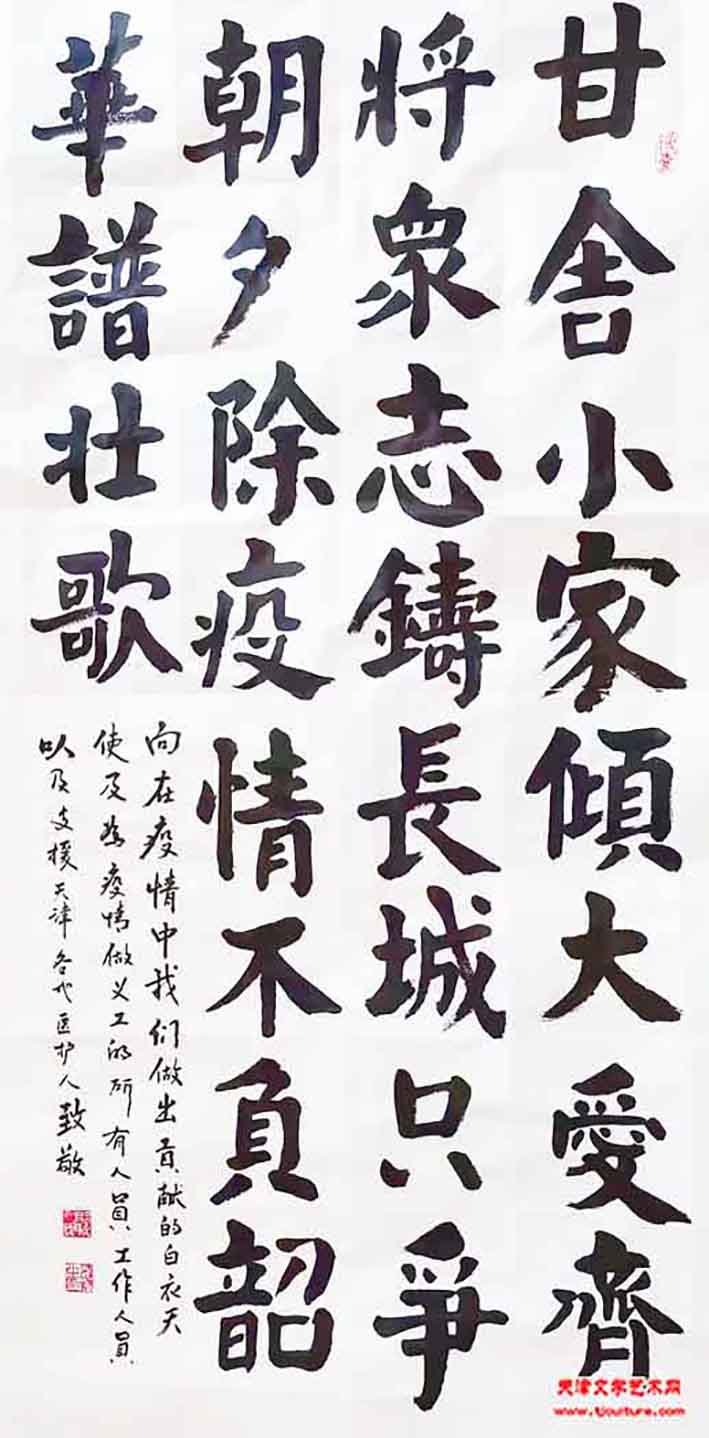 甘舍小家傾大愛齊
將衆志鑄長城只爭
朝夕除疫情不負韶
華譜壯歌
向在疫情中我们做出貢献的白衣天
使及为疫情做义工的所有人員工作人員
以及支援天津各地医护人致敬
天津文学艺术网
www.tjculture.com